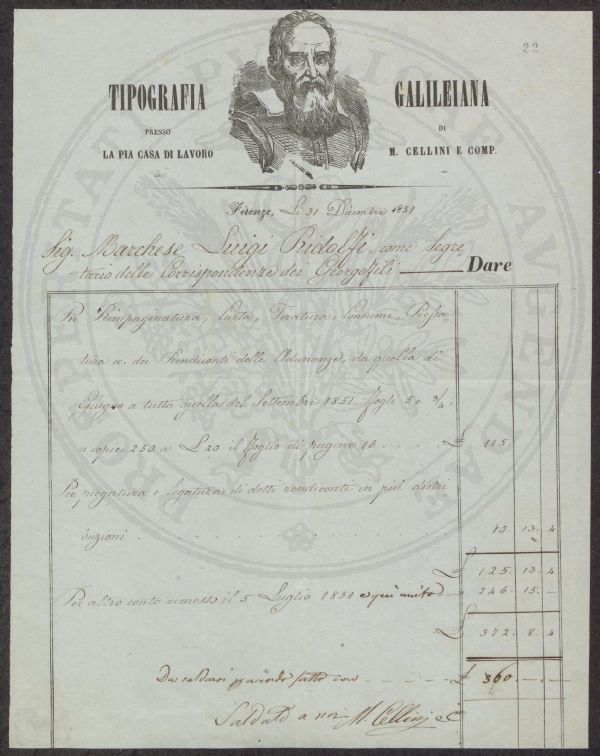 22
TIPOGRAFIA GALILEIANA
PRESSO DI
LA PIA CASA DI LAVORO M. CELLINI E COMP.
Firenze, Li 31 Dicembre 1851
Sig. Marchese Luigi Ridolfi, come Segre
tario delle Corrispondenze dei Georgofili Dare
Per Rimpaginatura, Carta, Tiratura, Consumi, Pressa
tura ec. dei Rendiconti delle Adunanze, da quella di
Giugno a tutta quella del Settembre 1851. fogli 5 e 3/4.
a copie 250 a L 20 il foglio di pagine 16. . . . . £ 115.
Per piegatura e legatura di detti rendiconti in più distri
buzioni . . . . . . . . . . 10. 13. 4
£ 125. 13. 4
Per altro conto rimesso il 5 Luglio 1851 e qui unito 246. 15. -
£ 372. 8. 4
Da saldarsi fatto con £ 360. - -
Saldato a noi M. Cellini e C.
PROSPERITATI PUBLICAE AUGENDAE